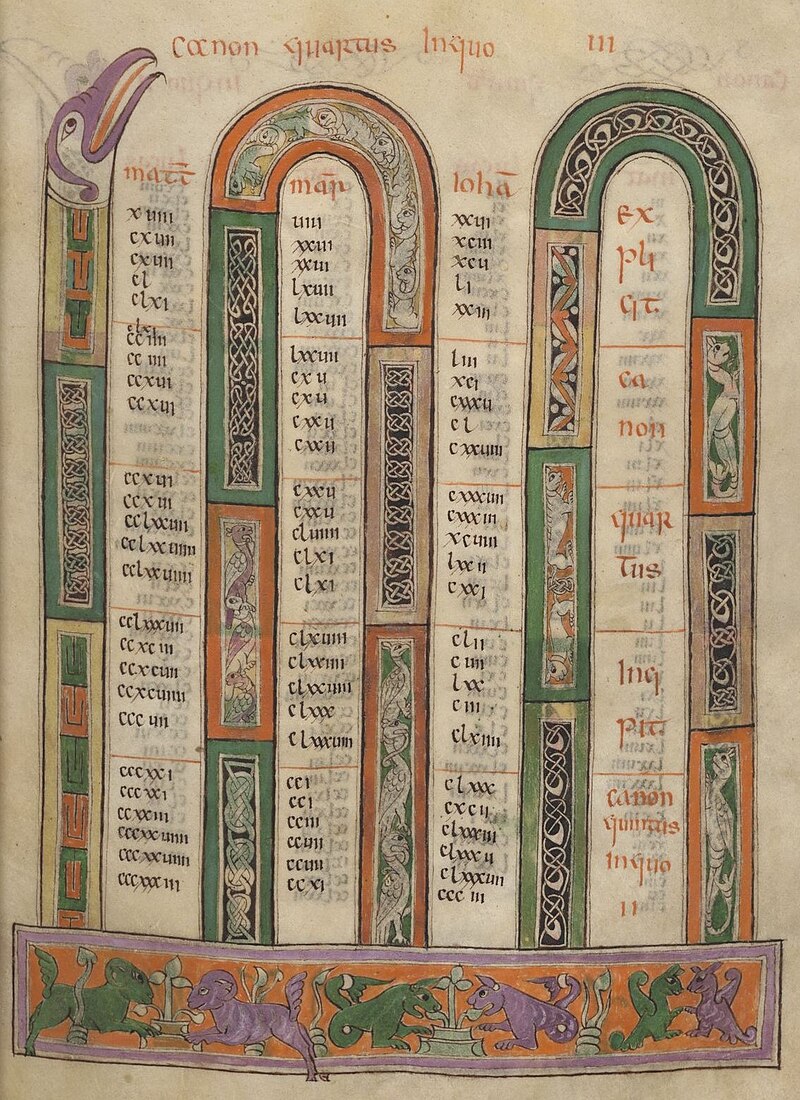 Canon quartus In quo III
matt̄
xuiii
cxuii
cxuii
cl
clxi
clxi
cciiii
cciiii
ccxui
ccxui
ccxui
ccxui
cclxxuiiii
cclxxuiiii
cclxxuiiii
cclxxxuii
ccxciii
ccxcuii
ccxcuiiii
cccuii
cccxxi
cccxxi
ccxxiii
cccxxuiiii
cccxxuiiii
cccxxxiii
mar̄
uiii
xxui
xxui
lxuii
lxxuii
lxxuii
cxu
cxu
cxxu
cxxu
cxxu
cxxu
cluiiii
clxi
clxi
clxuiii
clxxiiii
clxxuiiii
clxxx
clxxxuiii
cci
cci
cciii
ccuii
ccuii
ccxi
Iohā
xxui
xciii
xcu
li
xxiii
liii
xci
cxxxu
cl
cxxuiii
cxxxuiiii
cxxxiii
xcuiii
lxxii
cxxi
clii
cuii
lxx
ciii
clxiiii
clxxx
cxcii
clxxiii
clxxxu
clxxxuii
ccciii
ex
pli
cit
ca
non
quar
tus
Inci
pit
canon
quintus
In quo
II